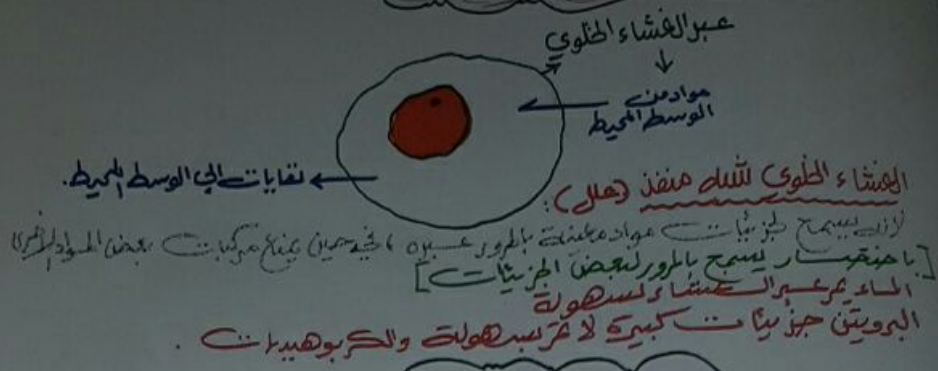 عبر الغشاء الخلوي
مواد من
الوسط المحيط
نفايات إلى الوسط المحيط.
الغشاء الخلوي شبه منفذ (علل):
لأنه يسمح لجزيئات مواد معينة بالمرور عبره، في حين يمنع مركبات بعض المواد الأخرى
[باختصار يسمح بالمرور لبعض الجزيئات]
الماء يمر عبر الغشاء بسهولة
البروتين جزيئات كبيرة لا تمر بسهولة والكربوهيدرات.